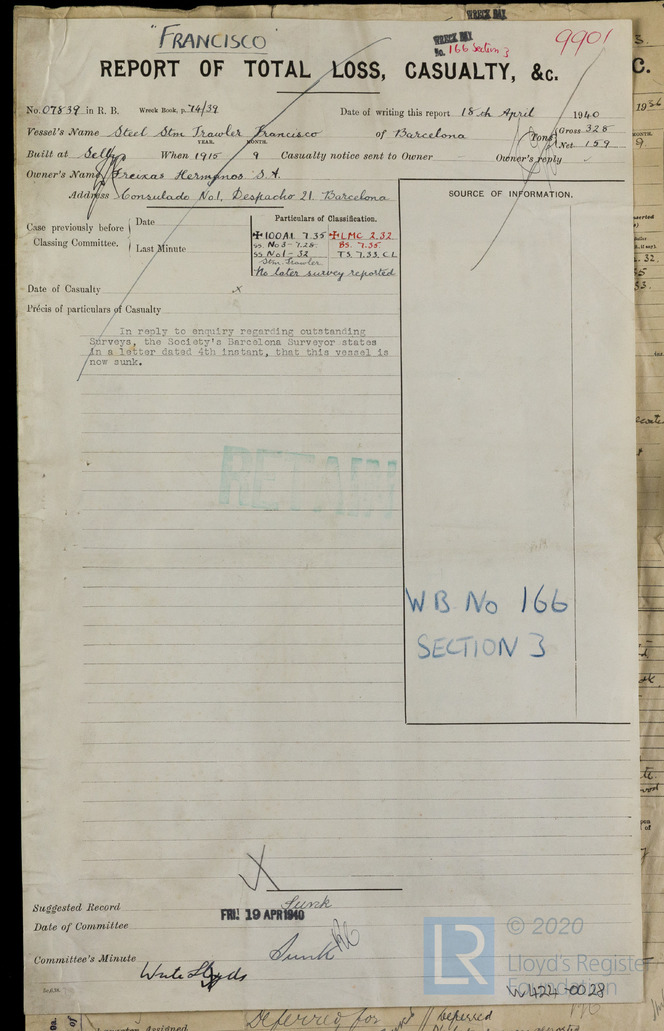 "FRANCISCO"
WRECK BAY
WRECK BAY
No. 166 Section 3
9901
REPORT OF TOTAL LOSS, CASUALTY, &c.
No. 07839 in R. B. Wreck Book, p. 74/39 Date of writing this report 18th April 1940
Vessel's Name Steel Stm Trawler Francisco of Barcelona Tons Gross 328
Net 159
YEAR. MONTH.
Built at Selby When 1915 9 Casualty notice sent to Owner Owner's reply
Owner's Name Freixas Hermanos S.A.
Address Consulado No 1, Despacho 21. Barcelona
SOURCE OF INFORMATION.
Case previously before Classing Committee. Date
Last Minute
Particulars of Classification.
✠100A1 7.35 ✠LMC 2.32
ss. No 3-7.28 BS. 7.35
ss No 1-32 TS. 7.33. CL
Stm. Trawler
No later survey reported
Date of Casualty x
Précis of particulars of Casualty
In reply to enquiry regarding outstanding
Surveys, the Society's Barcelona Surveyor states
in a letter dated 4th instant, that this vessel is
now sunk.
RETAIN
WB No 166
SECTION 3
Suggested Record Sunk
Date of Committee FRI. 19 APR 1940
Committee's Minute Sunk
Write Lloyds
© 2020
LR
Lloyd's Register
Foundation
W424-0028
Deferred for
Deferred